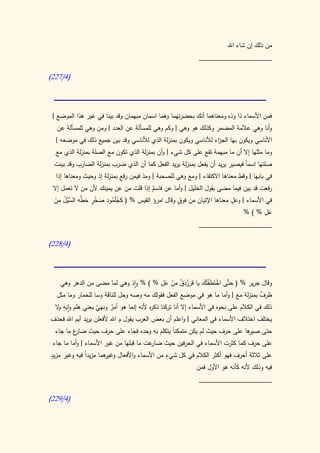 من ذلك إن شاء الله
(227/4)
فمن الأسماء ذا وذه ومعناهما أنك بحضرتهما وهما اسمان مبهمان وقد بينا في غير هذا الموضع |
وأنا وهي علامة المضمر وكذلك هو وهي | وكم وهي للمسألة عن العدد | ومن وهي للمسألة عن
الأناسي ويكون بها الجزاء للأناسي ويكون بمنزلة الذي للأناسي وقد بين جميع ذلك في موضعه |
وما مثلها إلا أن ما مبهمة تقع على كل شيء | وأن بمنزلة الذي تكون مع الصلة بمنزلة الذي مع
صلتها اسماً فيصير يريد أن يفعل بمنزلة يريد الفعل كما أن الذي ضرب بمنزلة الضارب وقد بينت
في بابها | وقط معناها الاكتفاء | ومع وهي للصحبة | ومذ فيمن رفع بمنزلة إذ وحيث ومعناها إذا
رفعت قد بين فيما مضى بقول الخليل | وأما عن فاسم إذا قلت من عن يمينك لأن من لا تعمل إلا
في الأسماء | وعل معناها الإتيان من فوق وقال امرؤ القيس % ( كَجُلْمُودِ صَخْرٍ حَطَّه السَّيْلُ مِنْ
عَلِ % ) %
وقال جرير % ( حتَّى اخْتَطَفْتُكَ يا فَرَزْدَقُ مِنْ عَلِ % ) % وإذ وهي لما مضى من الدهر وهي
ظرفٌ بمنزلة مع | وأما ما هو في موضع الفعل فقولك مه وصه وحل للناقة وسا للحمار وما مثل
ذلك في الكلام على نحوه في الأسماء إلا أنا تركنا ذكره لأنه إنما هو أمرٌ ونهيٌ يعني هلم وإيه ولا
يختلف اختلاف الأسماء في المعاني | واعلم أن بعض العرب يقول م الله لأفعلن يريد أيم الله فحذف
حتى صيرها على حرف حيث لم يكن متمكناً يتكلم به وحده فجاء على حرف حيث ضارع ما جاء
على حرف كما كثرت الأسماء في الحرفين حيث ضارعت ما قبلها من غير الأسماء | وأما ما جاء
على ثلاثة أحرف فهو أكثر الكلام في كل شيءٍ من الأسماء والأفعال وغيرهما مزيداً فيه وغير مزيدٍ
فيه وذلك لأنه كأنه هو الأول فمن
(229/4)